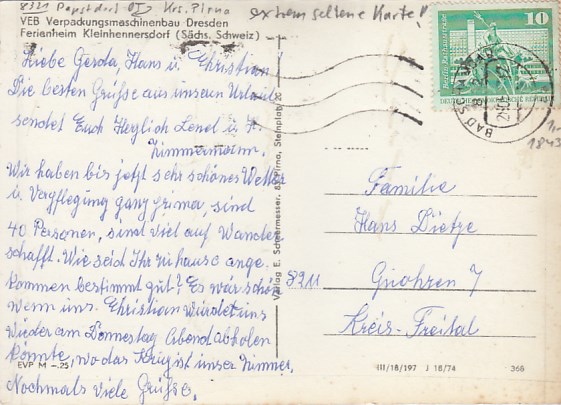 8321 Papstdorf OT Krs. Pirna
extrem seltene Karte!
VEB Verpackungsmaschinenbau Dresden
Ferienheim Kleinhennersdorf (Sächs. Schweiz)
Liebe Gerda, Hans u. Christian
Die besten Grüße aus unserem Urlaub
sendet Euch Herzlich
Zimmermann.
Wir haben bis jetzt sehr schönes Wetter
u. Verpflegung ganz prima, sind
40 Personen, sind viel auf Wander
schafft. Wie seid Ihr zuhause ange
kommen bestimmt gut? Es wär schön
wenn uns. Christian würdet uns
wieder am Donnestag Abend abholen
könnte, wo das Krug ist unser Zimmer.
Nochmals viele Grüße.
EVP M –.25
Verlag E. Schmermesser, 83 Pirna, Steinplatz 20
10
DEUTSCHE DEMOKRATISCHE REPUBLIK
BAD SCHANDAU
1843
Familie
Hans Dietze
8211 Quohren 7
Kreis-Freital
III/18/197 J 18/74 368